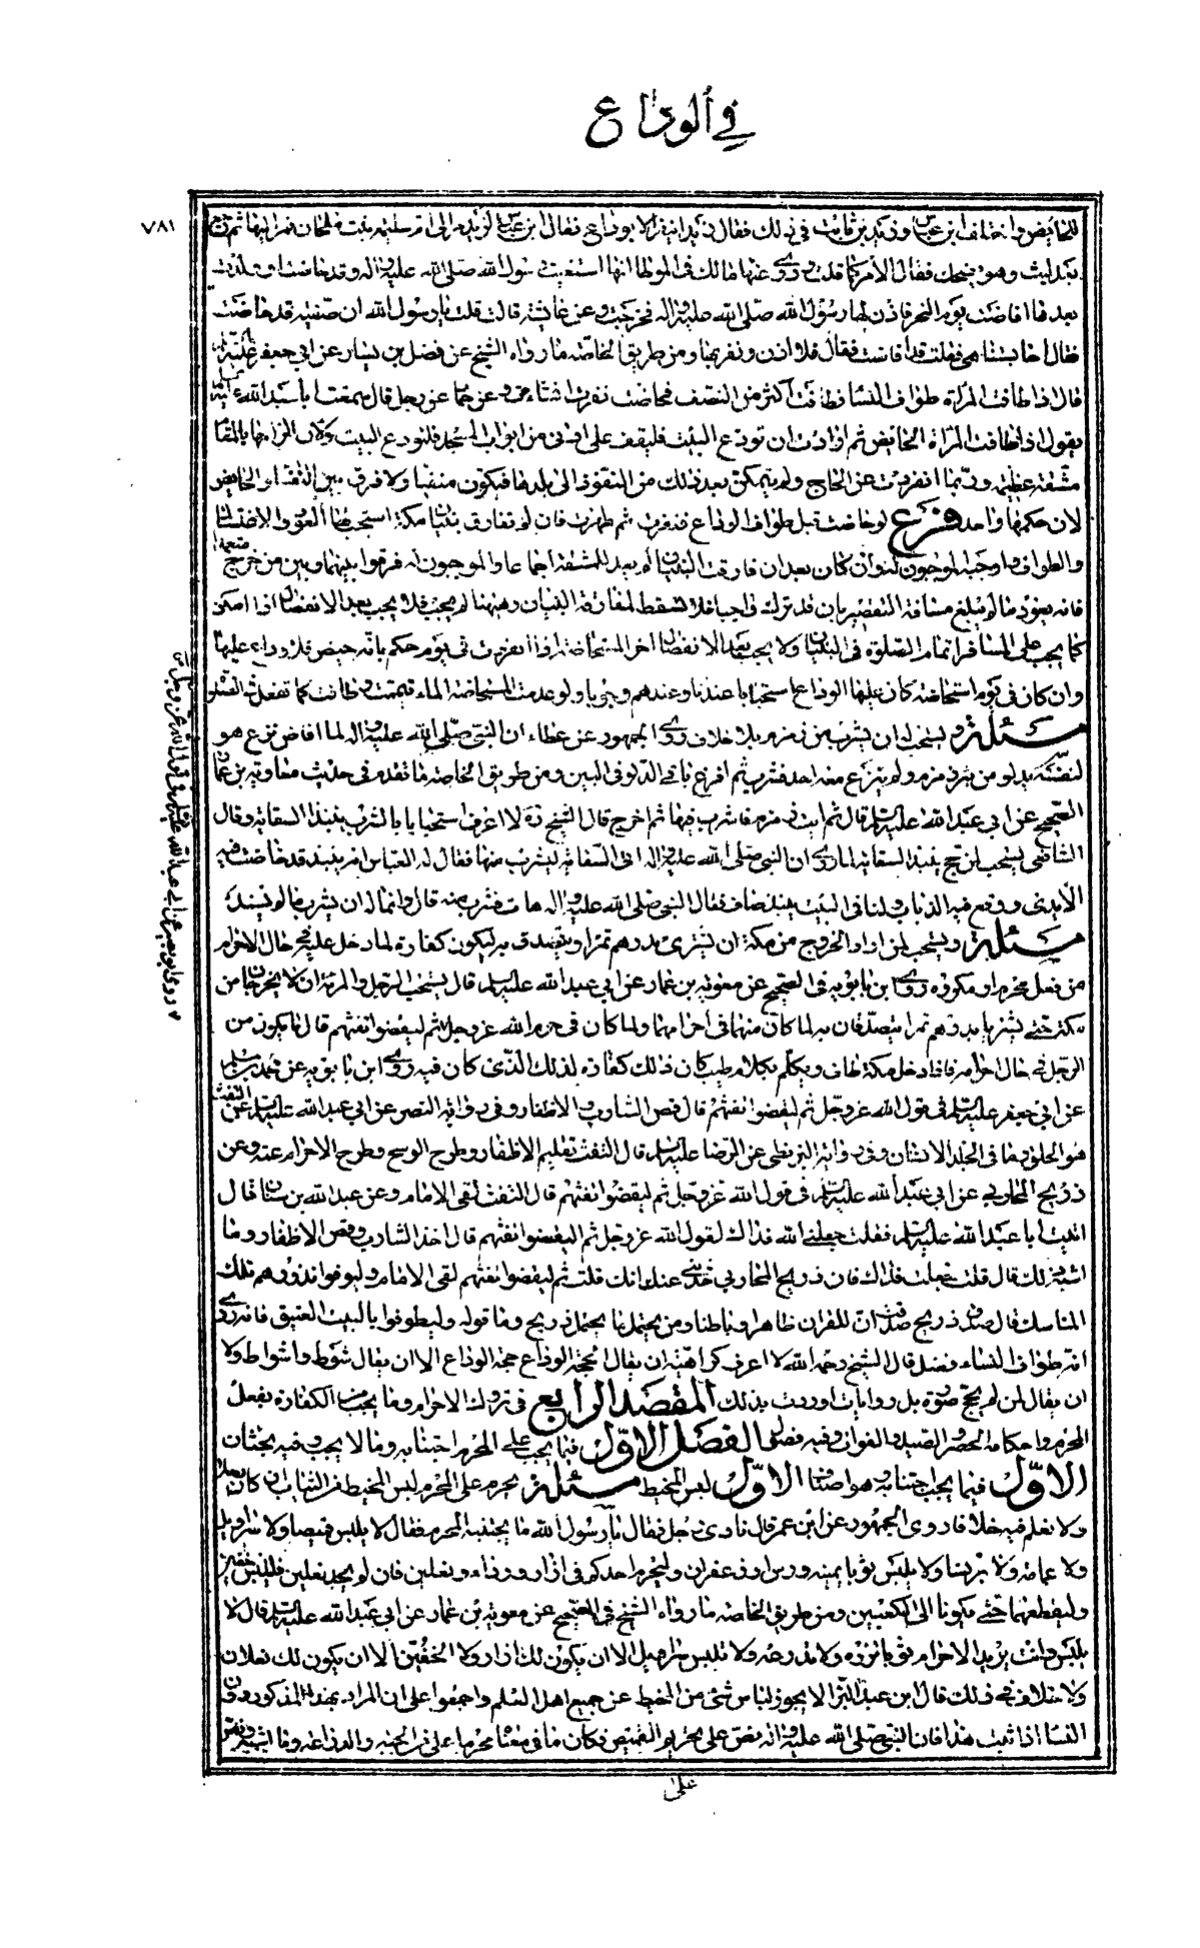 في الوداع
٧٨١
للحائض واختلف ابن عباس وزيد بن ثابت في ذلك فقال زيد لا تنفر الا بوداع فقال ابن عباس لزيد مر الى ام سليم بنت ملحان فمر اليها ثم خرج
بعد لبث وهو يضحك فقال الأمر كما قلت وروى عنها مالك في الموطا انها استفتيت رسول الله صلى الله عليه وآله وقد حاضت او ولدت
بعد ما افاضت يوم النحر فاذن لها رسول الله صلى الله عليه وآله فخرجت وعن عائشة قالت قلت يا رسول الله ان صفية قد حاضت
فقال احابستنا هي فقلت قد افاضت فقال فلا اذن ونفر بها ومن طريق الخاصة ما رواه الشيخ عن فضل بن يسار عن ابي جعفر عليه السلام
قال اذا طافت المرأة طواف النساء فطافت اكثر من النصف فحاضت نفرت ان شاءت وعن حماد عن رجل قال سمعت ابا عبد الله عليه السلام
يقول اذا طافت المرأة الحائض ثم ارادت ان تودع البيت فليقف على ادنى من ابواب المسجد فلتودع البيت ولان الزامها بالمقام
مشقة عظيمة وربما انفردت عن الحاج ولم يتمكن بعد ذلك من النفوذ الى بلدها فيكون منفيا ولا فرق بين النفساء والحائض
لان حكمهما واحد فرع لو حاضت قبل طواف الوداع فنفرت ثم طهرت فان لم تفارق بنيان مكة استحب لها العود والاغتسال
والطواف واوجبه الموجبون لنا وان كان بعد ان فارقت البنيان لم يعد للمشقة اجماعا والموجبون له فرقوا بينها وبين من خرج متعمدا
فانه يعود ما لم يبلغ مسافة التقصير بان قد ترك واجبا فلا تسقط لمفارقة البنيان وههنا لم يجب فلا يجب بعد الانفصال اذا امكن
كما يجب على المسافر اتمام الصلوة في البنيان ولا يجب بعد الانفصال اخر المستحاضة اذا نفرت في يوم حكم بانه حيض فلا وداع عليها
وان كان في يوم استحاضة كان عليها الوداع استحبابا عندنا وعندهم وجوبا ولو عدمت المستحاضة الماء تيممت وطافت كما تفعل في الصلوة
مسئلة ويستحب له ان يشرب من زمزم بلا خلاف روى الجمهور عن عطاء ان النبي صلى الله عليه وآله لما افاض نزع هو
لنفسه بدلو من بئر زمزم ولم ينزع معه احد فشرب ثم افرغ باقي الدلو في البئر ومن طريق الخاصة ما تقدم في حديث معاوية بن عمار
الصحيح عن ابي عبد الله عليه السلام قال ثم ائت زمزم فاشرب منها ثم اخرج قال الشيخ ره لا اعرف استحبابا بالشرب بنبيذ السقاية وقال
الشافعي يستحب لمن حج بنبيذ السقاية لما روى ان النبي صلى الله عليه وآله اتى السقاية ليشرب منها فقال له العباس انه نبيذ قد خاضت فيه
الأيدي ووقع فيه الذباب ولنا في البيت نبيذ صاف فقال النبي صلى الله عليه وآله هات فشرب منه قال وانما له ان يشرب ما لم يشتد
مسئلة ويستحب لمن اراد الخروج من مكة ان يشتري بدرهم تمرا ويتصدق به ليكون كفارة لما دخل عليه في حال الاحرام
من فعل محرم او مكروه روى ابن بابويه في الصحيح عن معوية بن عمار عن ابي عبد الله عليه السلام قال يستحب للرجل والمرأة ان لا يخرجا من
مكة حتى يشتريا بدرهم تمرا يتصدقان به لما كان منهما في احرامهما ولما كان في حرم الله عز وجل ثم ليقضوا تفثهم قال ما يكون من
الرجل في حال احرامه فاذا دخل مكة طاف وتكلم بكلام طيب كان ذلك كفارة لذلك الذي كان فيه وروى ابن بابويه عن محمد بن مسلم
عن ابي جعفر عليه السلام في قول الله عز وجل ثم ليقضوا تفثهم قال قص الشارب والاظفار وفي رواية النصر عن ابي عبد الله عليه السلام ان التفث
هو الحلق وما في الجلد الانسان وفي رواية البزنطي عن الرضا عليه السلام قال التفث تقليم الاظفار وطرح الوسخ وطرح الاحرام عنه وعن
ذريح المحاربي عن ابي عبد الله عليه السلام في قول الله عز وجل ثم ليقضوا تفثهم قال التفث لقي الامام وعن عبد الله بن سنان قال
اتيت ابا عبد الله عليه السلام فقلت جعلني الله فداك لقول الله عز وجل ثم ليقضوا تفثهم قال اخذ الشارب وقص الاظفار وما
اشبه ذلك قال قلت جعلت فداك فان ذريح المحاربي حدثني عنك انك قلت ثم ليقضوا تفثهم لقي الامام وليوفوا نذورهم تلك
المناسك قال صدق ذريح صدقت ان للقران ظاهرا وباطنا ومن يحتمل ما يحتمل ذريح وما قوله وليطوفوا بالبيت العتيق فانه روى
انه طواف النساء فصل قال الشيخ رحمه الله لا اعرف كراهية ان يقال لحجة الوداع حجة الوداع الا ان يقال شوط واشواط ولا
ان يقال لمن لم يحج صرورة بل روايات اوردت بذلك المقصد الرابع في تروك الاحرام وما يجب من الكفارة بفعل
المحرم واحكام الحصر والصيد والفوات وفيه فصول الفصل الاول فيما يجب على المحرم اجتنابه وما لا يجب وفيه بحثان
الاول فيما يجب اجتنابه وهو اصناف الاول لبس المخيط مسئلة يحرم على المحرم لبس المخيط من الثياب ان كان رجلا
ولا نعلم فيه خلافا روى الجمهور عن ابن عمر قال نادى رجل فقال يا رسول الله ما يجتنبه المحرم فقال لا يلبس قميصا ولا سراويل
ولا عمامة ولا برنسا ولا يلبس ثوبا يمسه ورس او زعفران وليحرم احدكم في ازار ورداء ونعلين فان لم يجد نعلين فليلبس خفين
وليقطعهما حتى يكونا الى الكعبين ومن طريق الخاصة ما رواه الشيخ في الصحيح عن معوية بن عمار عن ابي عبد الله عليه السلام قال لا
يلبس وانت يريد الاحرام ثوبا تزره ولا تدرعه ولا تلبس سراويل الا ان يكون لك ازار ولا الخفين الا ان يكون لك نعلان
ولا خلاف في ذلك قال ابن عبد البر لا يجوز لباس شئ من المخيط عن جميع اهل العلم واجمعوا على ان المراد بهذا المذكور دون
النساء اذا ثبت هذا فان النبي صلى الله عليه وآله نص على تحريم القميص فكان ما في معناه محرما على المحرم الجبة والدراعة وما اشبهه ونص
على
وروى ابو بصير عن ابي عبد الله عليه السلام في قول الله عز وجل